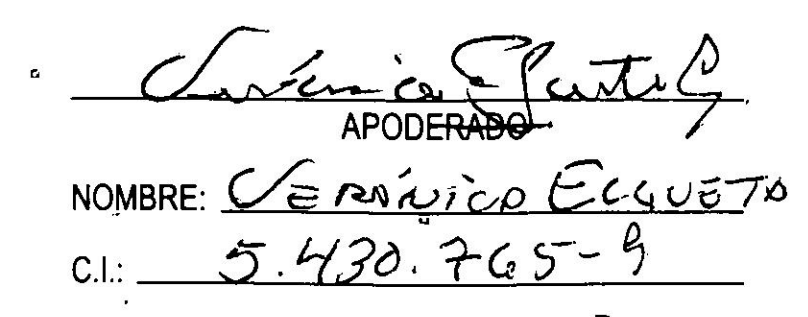 Verónica
APODERADO
NOMBRE: VERÓNICA ELGUETA
C.I.: 5.430.765-9